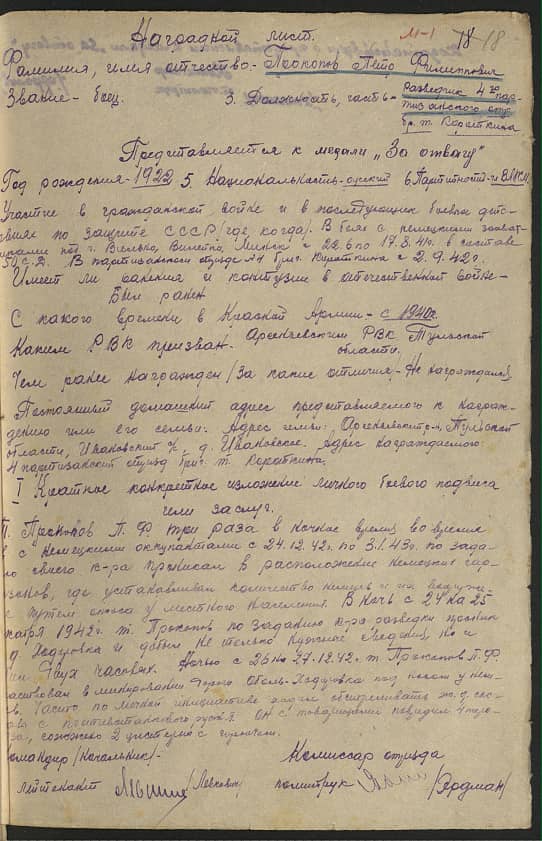 Наградной лист.
М-1
18 18
Фамилия, имя отчество - Прокопов Петр Филиппович
Звание - боец. 3. Должность, часть - Разведчик 4го пар-
тизанского отр.
бр. т. Короткина
Представляется к медали „За отвагу"
Год рождения - 1922 5. Национальность - русский 6 Партийность - ВЛКСМ
Участие в гражданской войне и в последующих боевых дейс-
твиях по защите СССР (где, когда). В боях с немецкими захват-
чиками г. Вильно, Вилейка, Минск с 22.6 по 17.8.41г. в составе
50 с.д. В партизанском отряде №4 бриг. Короткина с 2.9.42г.
Имеет ли ранения и контузии в отечественной войне -
Был ранен
С какого времени в Красной Армии - с 1940г.
Каким РВК призван. Арсеньевским РВК Тульской
области.
Чем ранее награжден /за какие отличия/ - Не награждался
Постоянный домашний адрес представляемого к награж-
дению или его семьи: Адрес семьи: Арсеньевский р-н, Тульской
области, Ивановский с/с, д. Ивановское. Адрес награждаемого:
4 партизанский отряд бриг. т. Короткина.
I Краткое конкретное изложение личного боевого подвига
или заслуг.
Т. Прокопов П. Ф. три раза в ночное время во время
с немецкими оккупантами с 24.12.42г. по 3.1.43г. по зада-
своего к-ра проникал в расположение немецких гар-
низонов, где устанавливал количество немцев и их вооруже-
путем опроса у местного населения. В ночь с 24 на 25
декабря 1942г. т. Прокопов по заданию к-ра разведки проник
д. Ходоровка и добыл не только нужные сведения, но и
двух часовых. Ночью с 26 на 27.12.42 т. Прокопов П.Ф.
участвовал в минировании дороги Оболь-Ходоровка под носом у нем-
цев. Часто по личной инициативе ходил обстреливать ж.д.
с противотанкового ружья. Он с товарищами повредил 4
за, сожжено 2 цистерны с горючим.
Командир /Начальник/ - Комиссар отряда
лейтенант /Левкович/ политрук /Фердман/